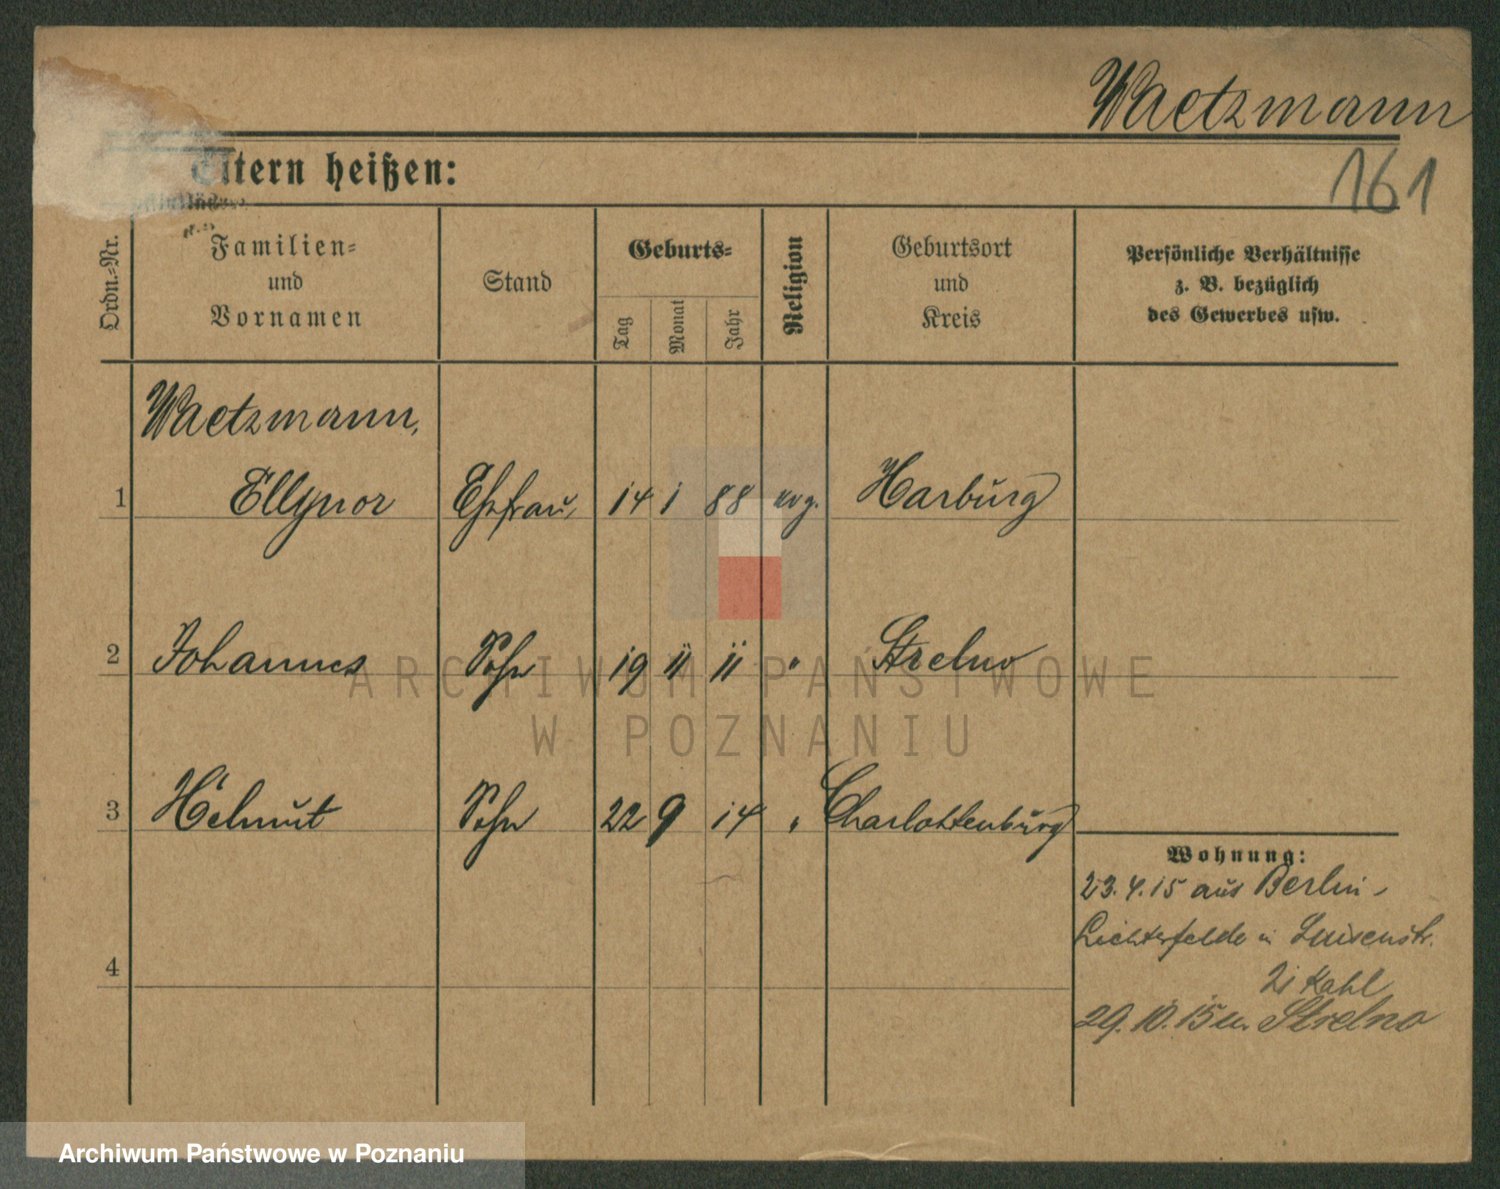 Waetzmann
161
Eltern heißen:
Ordn.-Nr.
Familien-
und
Vornamen
Stand
Geburts-
Tag
Monat
Jahr
Religion
Geburtsort
und
Kreis
Persönliche Verhältnisse
z. B. bezüglich
des Gewerbes usw.
Waetzmann,
1 Ellynor Ehefrau 14 1 88 evg. Harburg
2 Johannes Sohn 19 11 11 " Strelno
3 Helmut Sohn 22 9 14 " Charlottenburg
4
Wohnung:
23.4.15 aus Berlin-
Lichterfelde in Luisenstr.
Kahl
29.10.15 n. Strelno
ARCHIWUM PAŃSTWOWE
W POZNANIU
Archiwum Państwowe w Poznaniu